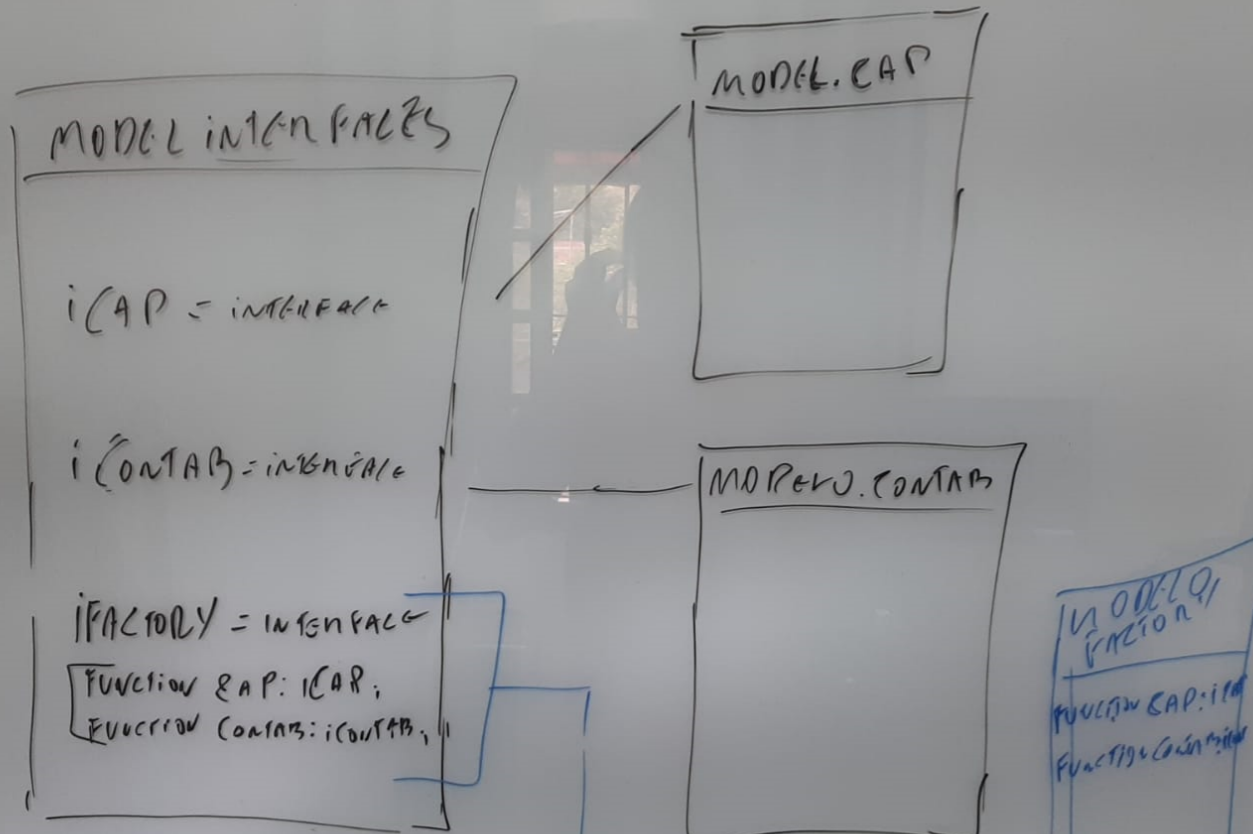 MODEL INTERFACES
iCAP = INTERFACE
iCONTAB = INTERFACE
iFACTORY = INTERFACE
FUNCTION CAP: ICAP;
FUNCTION CONTAB: iCONTAB;
MODEL.CAP
MODELO.CONTAB
MODELO,
FUNCTION CAP:
FUNCTION